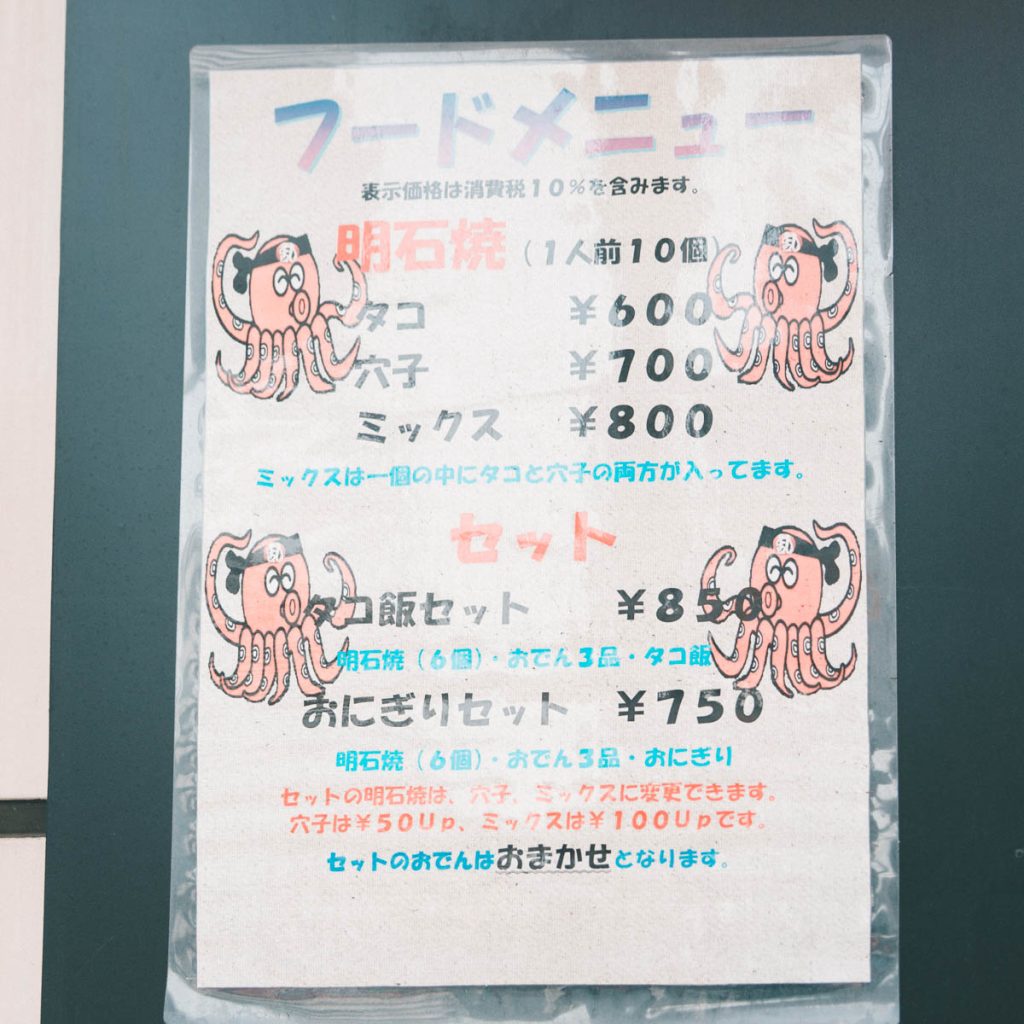 フードメニュー
表示価格は消費税10%を含みます。
明石焼（1人前10個）
タコ ￥600
穴子 ￥700
ミックス ￥800
ミックスは一個の中にタコと穴子の両方が入ってます。
セット
タコ飯セット ￥850
明石焼（6個）・おでん3品・タコ飯
おにぎりセット ￥750
明石焼（6個）・おでん3品・おにぎり
セットの明石焼は、穴子、ミックスに変更できます。
穴子は￥50Up、ミックスは￥100Upです。
セットのおでんはおまかせとなります。